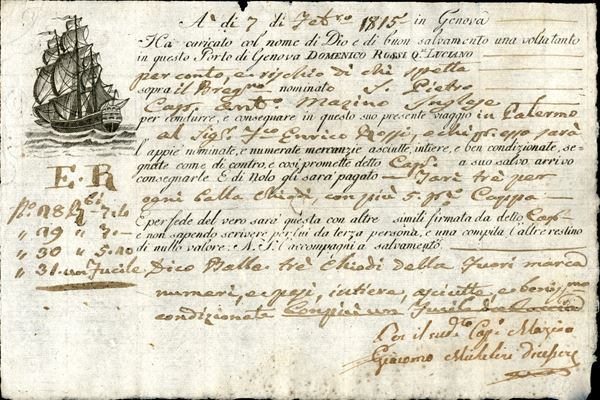 A' di 7 di Febro. 1815 in Genova
Ha caricato col nome di Dio e di buon salvamento una volta tanto
in questo Porto di Genova DOMENICO ROSSI Q. LUCIANO
per conto, e rischio di chi spetta
sopra il nominato S. Pietro
Cap. Anto. Mazino Inglese
per condurre, e consegnare in questo suo presente viaggio in Palermo
al Sigr. Enrico Rossi, e chi sarà
l'appiè nominate, e numerate mercanzie asciutte, intiere, e ben condizionate, se-
gnate come di contro, e così promette detto Cap. a suo salvo arrivo
consegnarle. E di Nolo gli sarà pagato Tarì trè per
E. R
ogni balla Chiodi, con più 5. Cappa
No. 28
E per fede del vero sarà questa con altre simili firmata da detto Cap.
" 29
e non sapendo scrivere per lui da terza persona, e una compita l'altre restino
" 30
di niun valore. N. S. l'accompagni a salvamento.
" 31 un Fucile Dico Balle trè Chiodi della fuori marca
numeri, e pesi, intiere, asciutte, e
condizionate
Per il Cap. Mazino
Giacomo